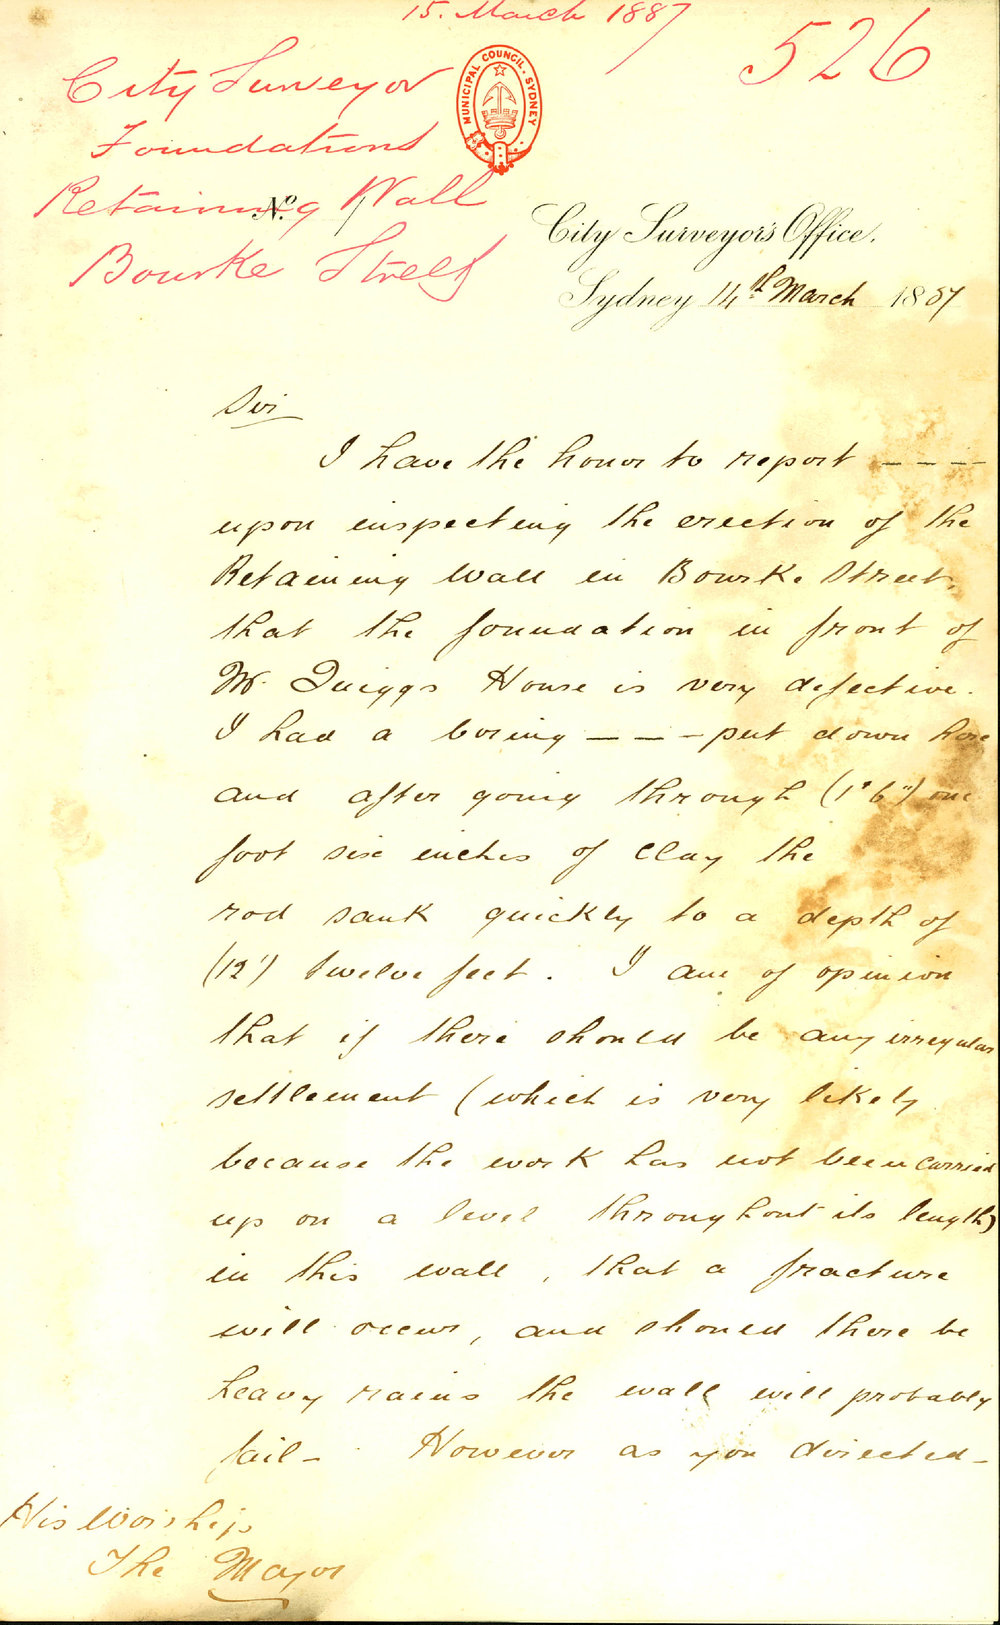 15. March 1887
526
City Surveyor
Foundations
Retaining Wall
Bourke Street
MUNICIPAL COUNCIL. SYDNEY
No.
City Surveyor's Office.
Sydney 14th March 1887
Sir
I have the honor to report ----
upon inspecting the erection of the
Retaining Wall in Bourke Street,
that the foundation in front of
Mr. Quiggs House is very defective.
I had a boring --- put down here
and after going through (1' 6") one
foot six inches of clay the
rod sank quickly to a depth of
(12') twelve feet. I am of opinion
that if there should be any irregular
settlement (which is very likely
because the work has not been carried
up on a level throughout its length)
in this wall, that a fracture
will occur, and should there be
heavy rains the wall will probably
fail - However as you directed -
His Worship
The Mayor